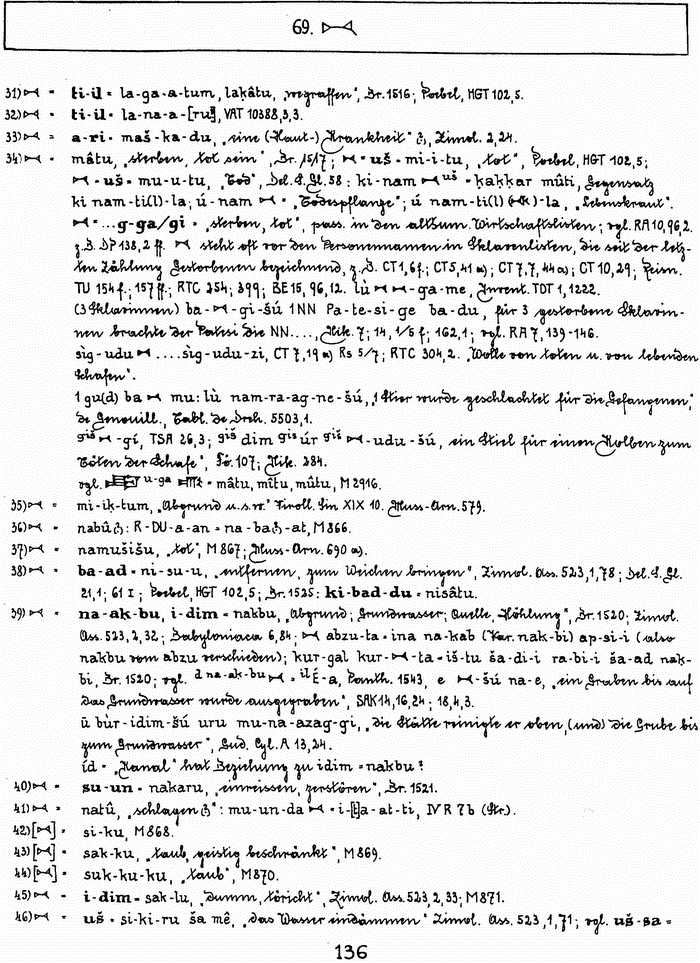 69. 𒁁
31) 𒁁 = ti-il = la-ga-a-tum, laḳâtu, „wegraffen", Br. 1516; Poebel, HGT 102,5.
32) 𒁁 = ti-il = la-na-a-[ru], VAT 10388,3,3.
33) 𒁁 = a-ri = maš-ka-du, „eine (Haut-) Krankheit" Zimol. 2,24.
34) 𒁁 = mâtu, „sterben, tot sein", Br. 1517; 𒁁 = uš = mi-i-tu, „tot", Poebel, HGT 102,5;
𒁁 = uš = mu-u-tu, „Tod", Del. S. Gl. 58: ki-nam 𒁁 uš = ḳaḳḳar mûti, Gegensatz
ki nam-ti(l)-la; ú-nam 𒁁 = „Todespflanze"; ú nam-ti(l) -la, „Lebenskraut".
𒁁 = ...g-ga/gi = „sterben, tot", pass. in den altsum. Wirtschaftslisten; vgl. RA 10,96,2.
z.B. DP 138,2 ff. 𒁁 steht oft vor den Personennamen in Sklavenlisten, die seit der letz-
ten Zählung Gestorbenen bezeichnend, z.B. CT 1,6 f.; CT 5,41 a); CT 7,7,44 a); CT 10,29; Reisn.
TU 154 f.; 157 ff.; RTC 254; 399; BE 15, 96,12. lù 𒁁-𒁁-ga-me, Invent. TDT 1,1222.
(3 Sklavinnen) ba-𒁁-gi-šú 1 NN Pa-te-si-ge ba-du, für 3 gestorbene Sklavin-
nen brachte der Patesi die NN...., Nik. 7; 14, 1/5 f; 162,1; vgl. RA 7,139-146.
sìg-udu 𒁁 ....sìg-udu-zi, CT 7,19 a) Rs 5/7; RTC 304,2. „Wolle von toten u. von lebenden
Schafen".
1 gu(d) ba 𒁁 mu: lù nam-ra-ag-ne-šú, „1 Stier wurde geschlachtet für die Gefangenen,"
de Genouill., Tabl. de Dreh. 5503,1.
giš 𒁁-gí, TSA 26,3; giš dim giš úr giš 𒁁-udu-šú, ein Stiel für einen Kolben zum
Töten der Schafe", Fö. 107; Nik. 284.
vgl. u-ga = mâtu, mîtu, mûtu, M 2916.
35) 𒁁 = mi-iḳ-tum, „Abgrund u.s.w." Viroll. Sin XIX 10. Muss-Arn. 579.
36) 𒁁 = nabû : R-DU-a-an = na-ba -at, M 866.
37) 𒁁 = namušišu, „tot", M 867; Muss-Arn. 690 a).
38) 𒁁 = ba-ad = ni-su-u, „entfernen, zum Weichen bringen", Zimol. Ass. 523,1,78; Del. S. Gl.
21,1; 61 I; Poebel, HGT 102,5; Br. 1525: ki-bad-du = nisâtu.
39) 𒁁 = na-ak-bu, i-dim = nakbu, „Abgrund; Grundwasser; Quelle, Höhlung", Br. 1520; Zimol.
Ass. 523,2,32; Babyloniaca 6,84: 𒁁 abzu-ta = ina na-kab (Var. nak-bi) ap-si-i (also
nakbu vom abzu verschieden); kur-gal kur-𒁁-ta = iš-tu ša-di-i ra-bi-i ša-ad naḳ-
bi, Br. 1520; vgl. d na-aḳ-bu 𒁁 = il É-a, Panth. 1543, e 𒁁-šú na-e, „ein Graben bis auf
das Grundwasser wurde ausgegraben", SAK 14,16,24; 18,4,3.
ū bùr-idim-šú uru mu-na-azag-gi, „die Stätte reinigte er oben, (und) die Grube bis
zum Grundwasser", Gud. Cyl. A 13,24.
íd = „Kanal" hat Beziehung zu idim = nakbu?
40) 𒁁 = su-un = nakaru, „einreissen, zerstören", Br. 1521.
41) 𒁁 = natû, „schlagen ": mu-un-da 𒁁 = i-[t]a-at-ti, IV R 7 b (Str.).
42) [𒁁] = si-ku, M 868.
43) [𒁁] = sak-ku, „taub, geistig beschränkt", M 869.
44) [𒁁] = suk-ku-ku, „taub", M 870.
45) 𒁁 = i-dim = sak-lu, „dumm, töricht", Zimol. Ass. 523,2,33; M 871.
46) 𒁁 = uš = si-ki-ru ša mê, „das Wasser eindämmen" Zimol. Ass. 523,1,71; vgl. uš-sa =
136